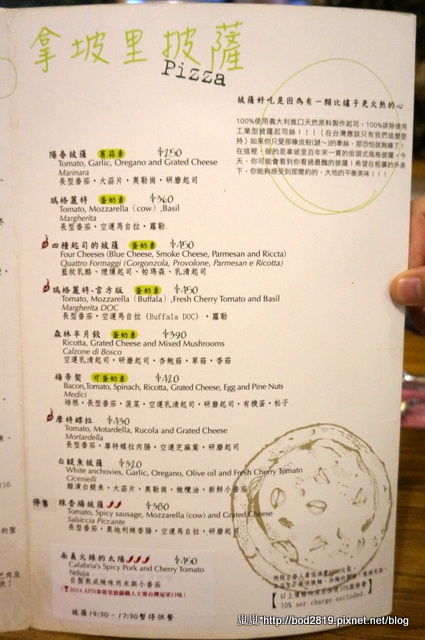 拿坡里披薩
Pizza
披薩好吃是因為有一顆比爐子更火熱的心
100%使用義大利進口天然原料製作起司、100%排除使用
工業型披薩起司絲！！！(在台灣應該只有我們這麼堅
持)如果你只愛那橡皮般(謎~)的牽絲，那恐怕就無緣了！
在這裡，做的是拿坡里百年來一貫的街頭式風格披薩。今
天，你可能會看到你看過最醜的披薩！希望在粗獷的外表
下，你能夠感受到那簡約的、大地的平衡美味！！！
陽春披薩 蔥蒜素 $250
Tomato, Garlic, Oregano and Grated Cheese
Marinara
長型番茄、大蒜片、奧勒崗、研磨起司
瑪格麗特 蛋奶素 $360
Tomato, Mozzarella (cow) ,Basil
Margherita
長型番茄、空運馬自拉、羅勒
四種起司的披薩 蛋奶素 $450
Four Cheeses (Blue Cheese, Smoke Cheese, Parmesan and Riccta)
Quattro Formaggi (Gorgonzola, Provolone, Parmesan e Ricotta)
藍紋乳酪、煙燻起司、帕瑪森、乳清起司
瑪格麗特-官方版 蛋奶素 $450
Tomato, Mozzarella (Buffala) ,Fresh Cherry Tomato and Basil
Margherita DOC
長型番茄、空運馬自拉(Buffala DOC)、羅勒
森林半月餃 蛋奶素 $390
Ricotta, Grated Cheese and Mixed Mushrooms
Calzone di Bosco
空運乳清起司、研磨起司、杏鮑菇、草菇、香菇
梅蒂契 可蛋奶素 $420
Bacon,Tomato, Spinach, Ricotta, Grated Cheese, Egg and Pine Nuts
Medici
培根、長型番茄、菠菜、空運乳清起司、研磨起司、有機蛋、松子
摩特螺拉 $430
Tomato, Motardella, Rucola and Grated Cheese
Mortardella
長型番茄、摩特螺拉肉腸、空運芝麻葉、研磨起司
白鯷魚披薩 $320
White anchovies, Garlic, Oregano, Olive oil and Fresh Cherry Tomato
Cicenielli
醋漬白鯷魚、大蒜片、奧勒崗、橄欖油、新鮮小番茄
停售 辣香腸披薩 $380
Tomato, Spicy sausage, Mozzarella (cow) and Grated Cheese
Salsiccia Piccante
長型番茄、奧地利辣香腸、空運馬自拉、研磨起司
南義火辣的太陽 $450
Calabria's Spicy Pork and Cherry Tomato
Nduja
自製熟成辣味肉末與小番茄
披薩14:30 - 17:30暫停供餐
10% ser charge excluded.
囍囍 http://bod2819.pixnet.net/blog